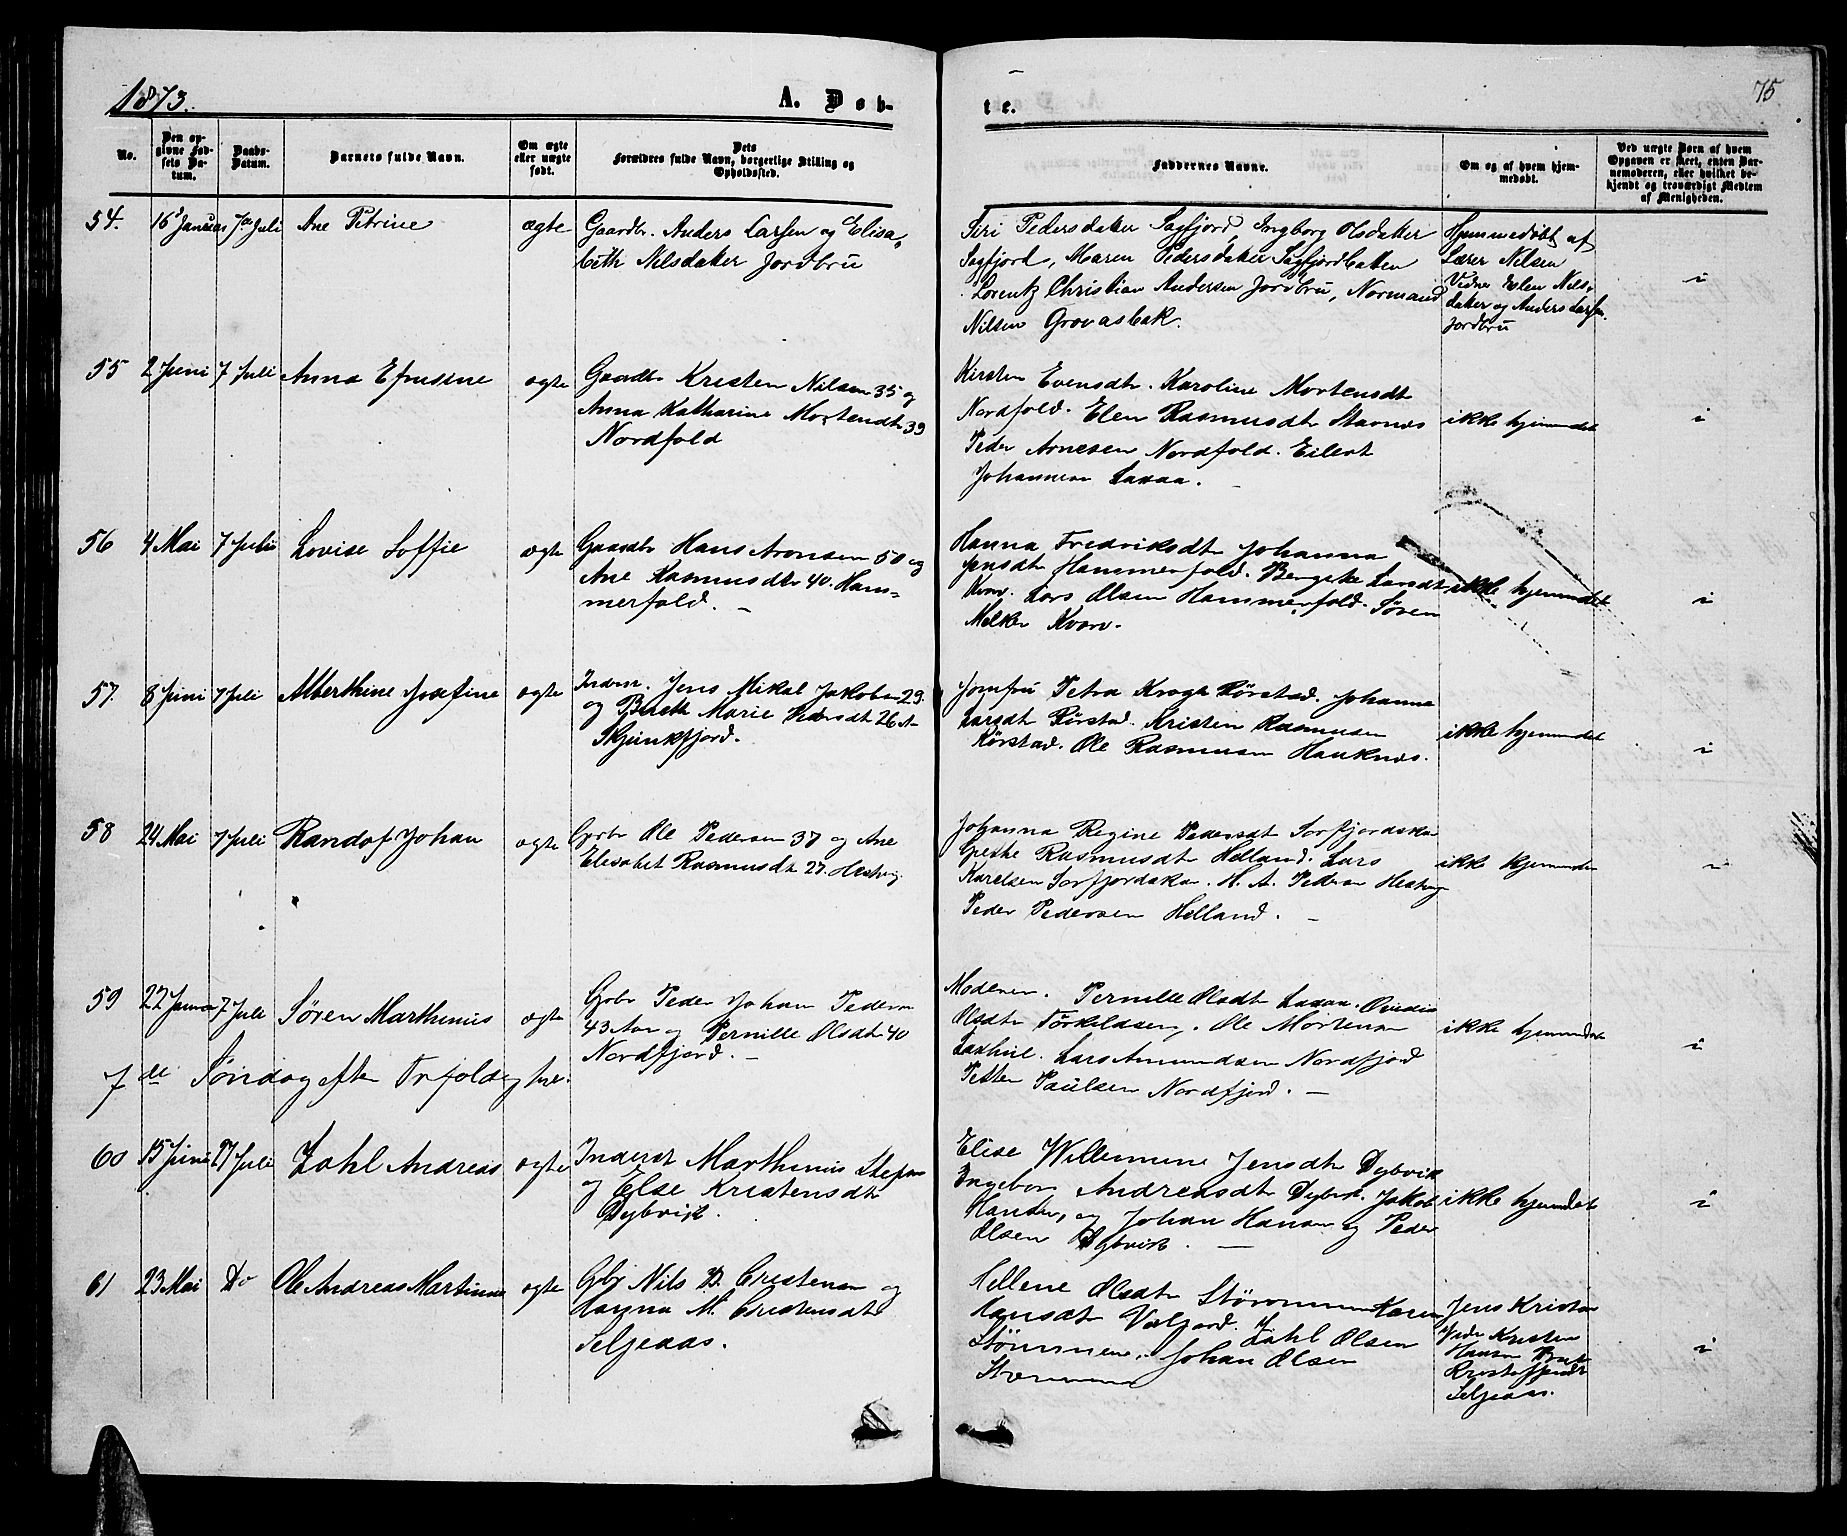 1873.
A. Døb-
te.
75
No.
Den op-
givne Fød-
sels Da-
tum.
Daabs-
Datum.
Barnets fulde Navn.
Om ægte
eller uægte
født.
Dets
Forældres fulde Navn, borgerlige Stilling og
Opholdssted.
Faddernes Navne.
Om og af hvem hjem-
medøbt.
Ved uægte Børn af hvem
Opgaven er skeet, enten Bar-
nemoderen, eller hvilket be-
kjendt og troværdigt Medlem
af Menigheden.
54. 16 Januar 7de Juli Ane Petrine ægte
Gaardbr. Anders Larsen og Elisa-
beth Nilsdatter Jordbru
Siri Pedersdatter Sagfjord, Ingborg Olsdatter
Sagfjord, Maren Pedersdatter Sagfjordbotten
Lorentz Christian Andersen Jordbru, Normand
Nilsen Grovasbak.
Hjemmedøbt af
Lærer Nilsen
Vidner Elen Nils-
datter og Anders Larsen
Jordbru
55 2 Juni 7 Juli Anna Efrusine ægte
Gaardbr Kristen Nilsen 35 og
Anna Katharine Mortensdt 39
Nordfold
Kirsten Evensdt. Karoline Mortensdt
Nordfold. Elen Rasmusdt Stavnes
Peder Arnesen Nordfold. Eilert
Johannesen Laxaa.
ikke hjemmedøbt
56 4 Mai 7 Juli Lovise Soffie ægte
Gaardbr Hans Aronsen 50 og
Ane Rasmusdt 40. Ham-
merfold.
Hanna Fredriksdt Johanna
Jensdt Hammerfold. Bergitte Larsdt
Kvarv. Lars Olsen Hammerfold. Søren
Melker Kvarv.
ikke hjemmedøbt
57. 8 Juni 7 Juli Alberthine Josefine ægte
Inderst. Jens Mikal Jakobsen 29.
og Marie 26 A
Skjunkfjord.
Jomfru Petra Krogh Rørstad. Johanne
Larsdt Rørstad. Kristen Rasmusen
Rørstad. Ole Rasmusen Hauknes.
ikke hjemmedøbt
58 24 Mai 7 Juli Randof Johan ægte
Grbr Ole Pedersen 37 og Ane
Elisabet Rasmusdt 27. Hestvig
Johanna Regine Pedersdt Sørfjordskar
Grethe Rasmusdt Helland. Lars
Karelsen Sørfjordskar. H. A. Pedersen Hestvig
Peder Pedersen Helland.
ikke hjemmedøbt
59 22 Januar 7 Juli Søren Marthinus ægte
Grbr Peder Johan Pedersen
43 Aar og Pernille Olsdt 40
Nordfjord.
Moderen. Pernille Olsdt Laxaa.
Olsdt Torkildseng. Ole Mortensen
Laxhul. Lars Amundsen Nordfjord
Petter Paulsen Nordfjord.
ikke hjemmedøbt
7de Søndag efter Trefoldighed.
60 15 Juni 27 Juli Zahl Andreas ægte
Inderst Marthinus Stefen
og Else Kristensdt
Dybvik.
Elise Willemine Jensdt Dybvik
Ingebor Andreasdt Dybvik. Jakob
Hansen, og Johan Hansen og Peder
Olsen Dybvik.
ikke hjemmedøbt
61 23 Mai Do Ole Andreas Martinus ægte
Gbr Nils P. Cristensen og
Hanna M. Cristensdt
Seljeaas.
Hellene Olsdt Strømmen Karen
Hansdt Valjord. Zahl Olsen
Strømmene. Johan Olsen
Strømmen
Jens Kristen
Vidn Kristen
Hansen
Kristoffersdt
Seljeaas.